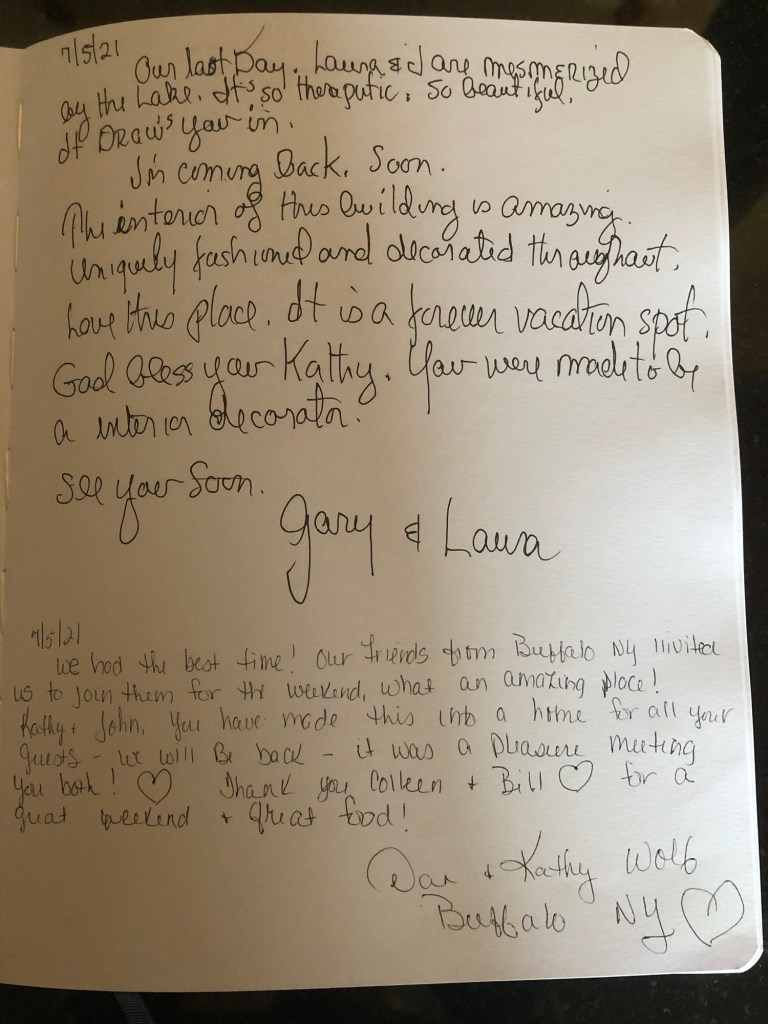 7/5/21
Our last Day. Laura & I are mesmerized
by the Lake. It's so theraputic. So beautiful.
It Draws you in.
I'm coming Back. Soon.
The interior of this building is amazing.
Uniquely fashioned and decorated throughout.
Love this place. It is a forever vacation spot.
God bless you Kathy. You were made to be
a interior decorator.
See you Soon.
Gary & Laura
7/5/21
We had the best time! Our friends from Buffalo NY invited
us to join them for the weekend, what an amazing place!
Kathy + John, You have made this into a home for all your
guests - we will Be back - it was a Pleasure meeting
you both! ♡ Thank you Colleen + Bill ♡ for a
great weekend + great food!
Dan + Kathy Wolf
Buffalo NY ♡